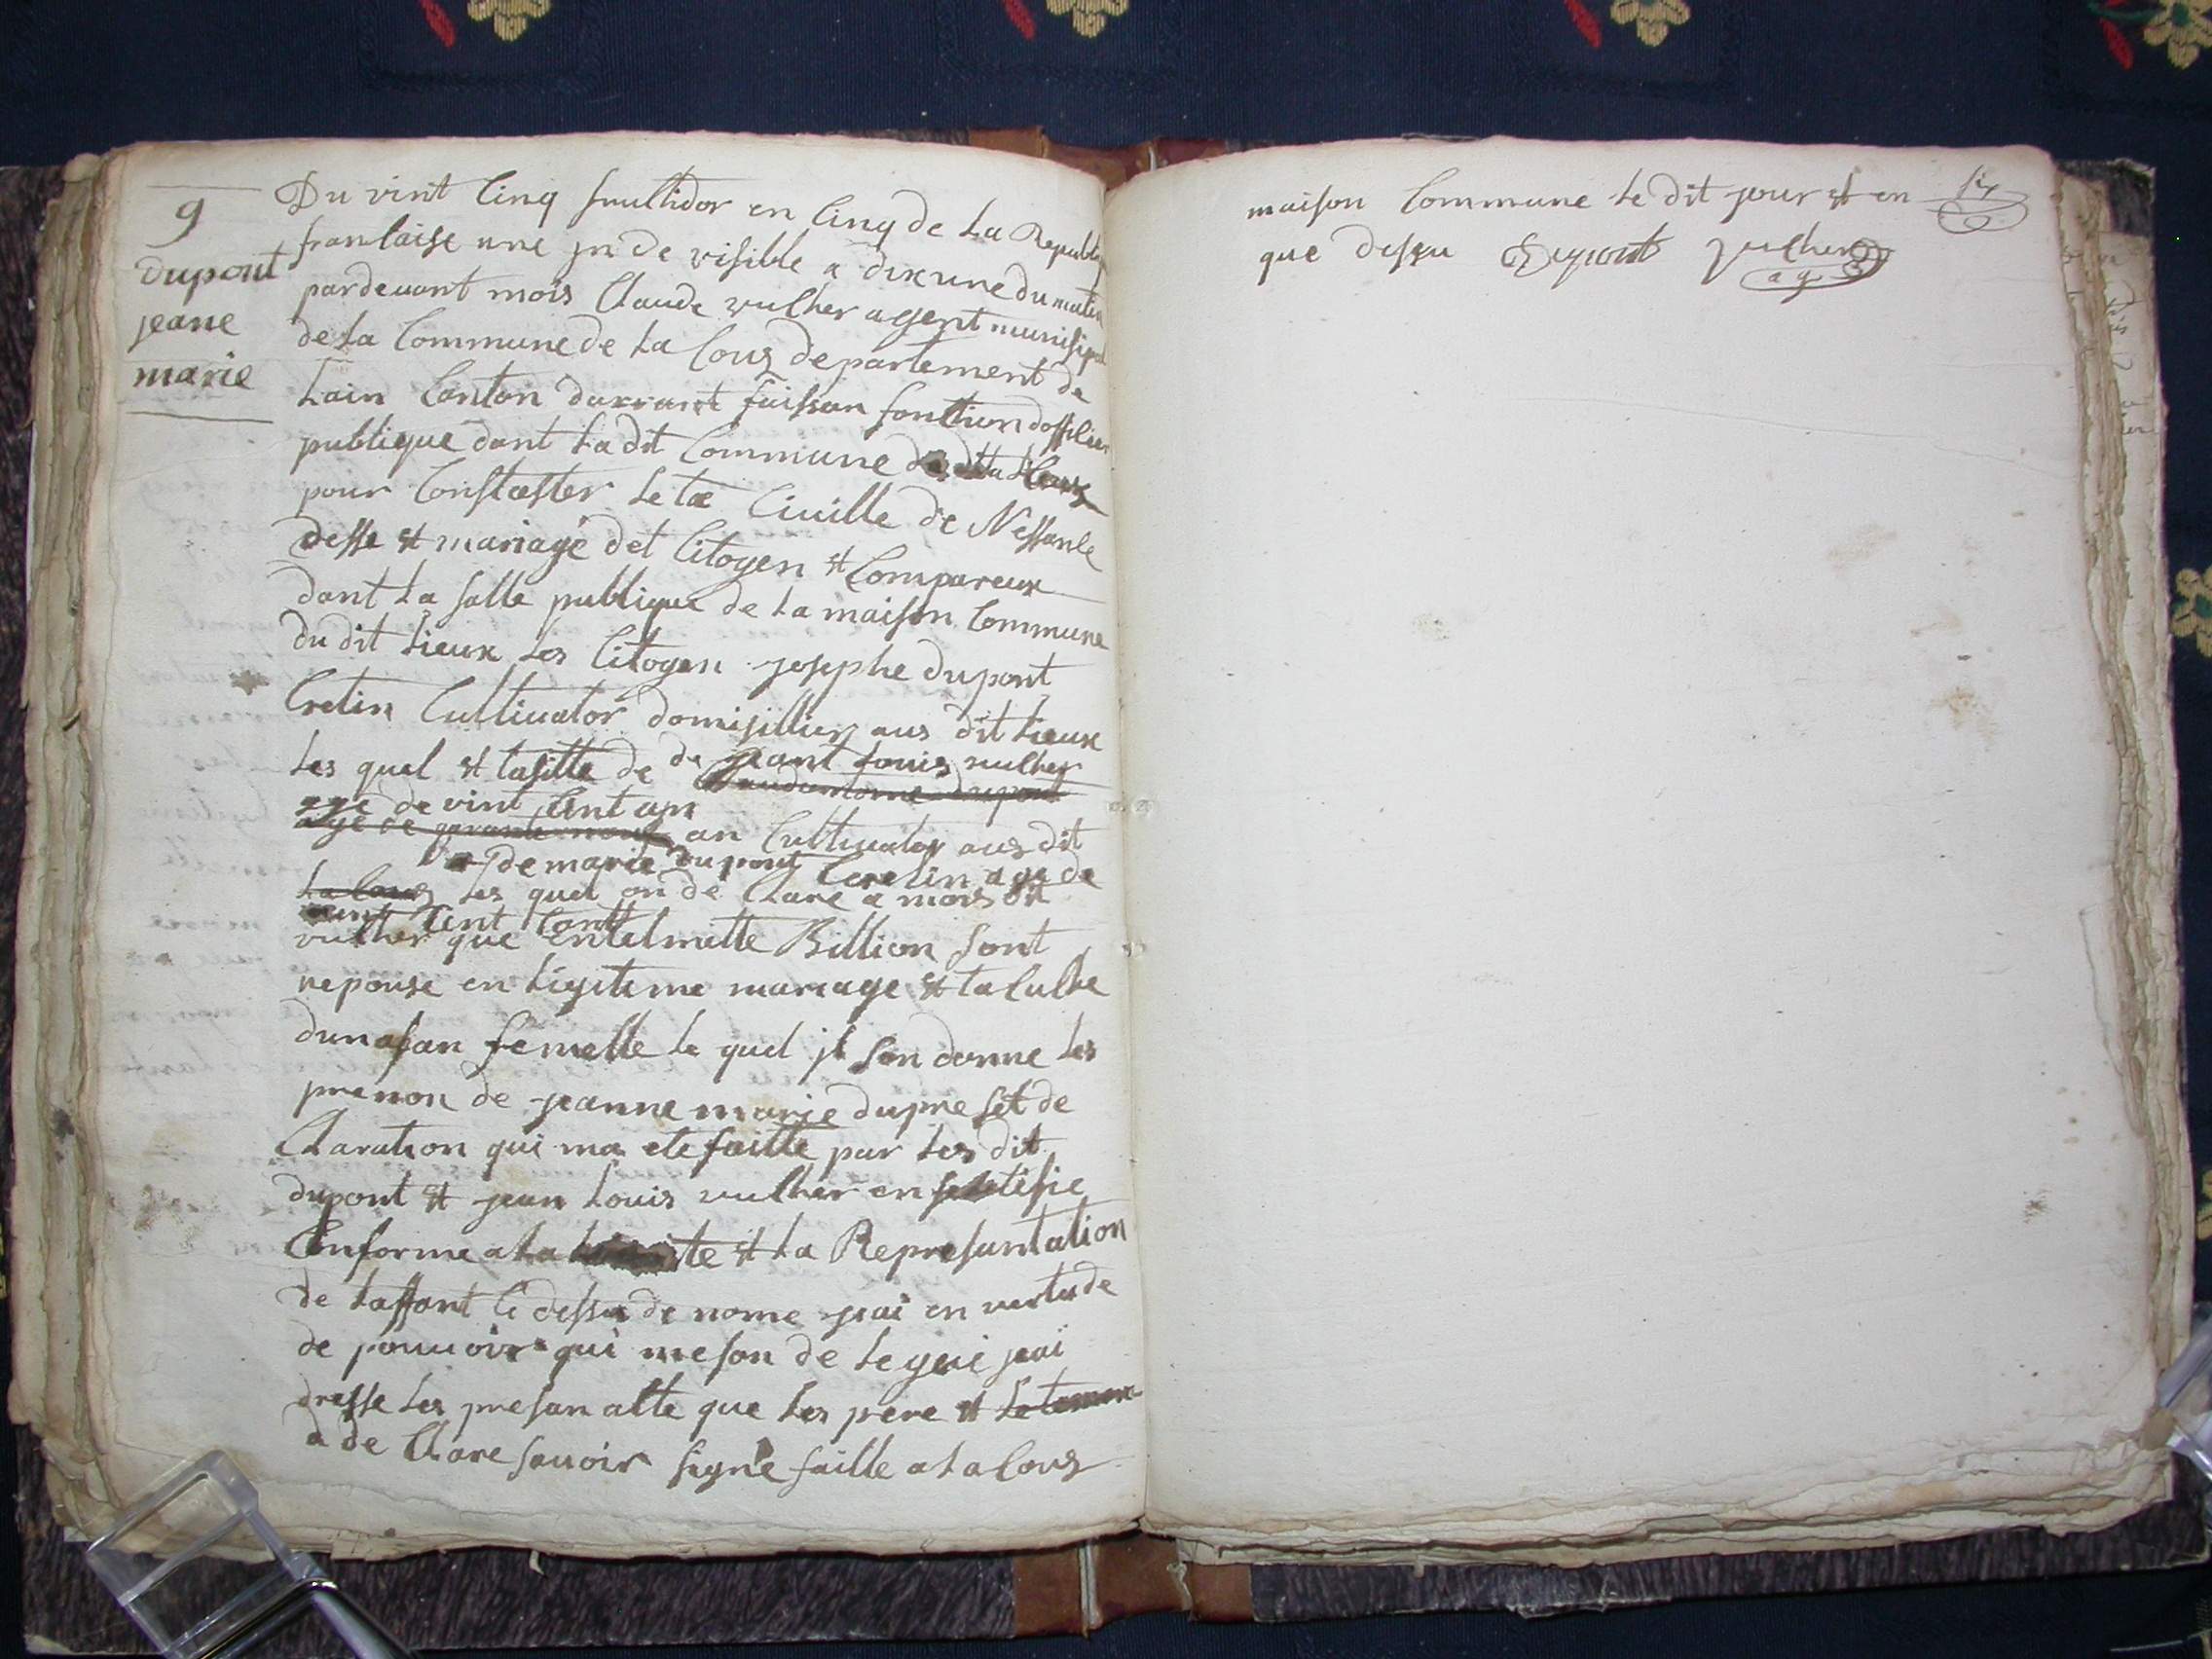 9
dupont
jeane
marie
Du vint cinq fruttidor en cinq de la Republiq
franlaise une jndevisible a dix une du matin
pardevant mois Claude vulher agent munisipal
de la Commune de la Cous departement de
Lain Canton darrant faissan fonction doffilier
publique dant la dit Commune
pour Constaster letæ Civille de Nessanle
desse et mariage det Citogen et Compareux
dant la salle publique de la maison Commune
du dit lieux les Citogen josephe dupont
Cretin Cultivator domisillier aus dit lieux
de jeant louis vulher
les quel et tasitte de
age de vint cent an
an Cultivator aus dit
de marie dupont Cretin age de
la Cous les quel on de Clare a mois dit
vint cent
vulher que Entelmette Billion sont
nepouse en ligitime mariage et taluche
dunasan femelle le quel jl son donne les
prenon de jeanne marie dupre set de
Claration qui ma ete faitte par les dit
dupont et jean louis vulher en
Conforme a la et la Represantation
de laffant ci dessu de nome jeai en vertu de
de pouvoir qui me son de legue jeai
dresse les presan alte que les pere et
a de Clare savoir signe faille a la Cous
maison Commune le dit jour et en
que dessu Dupont vulher
ag